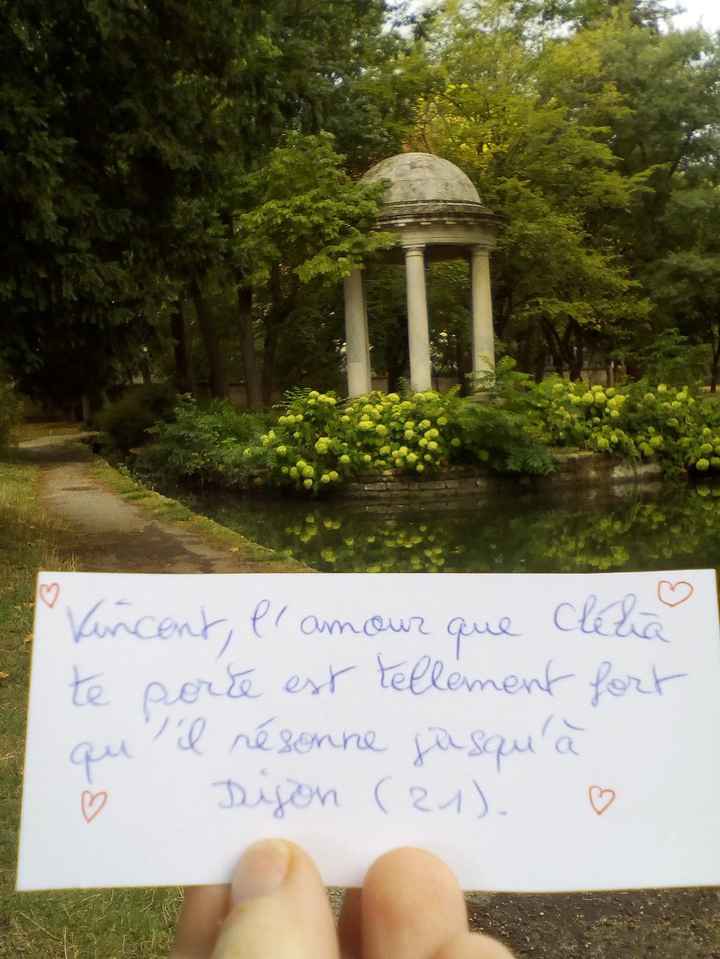 Vincent, l'amour que Clélia
te porte est tellement fort
qu'il résonne jusqu'à
Dijon (21).